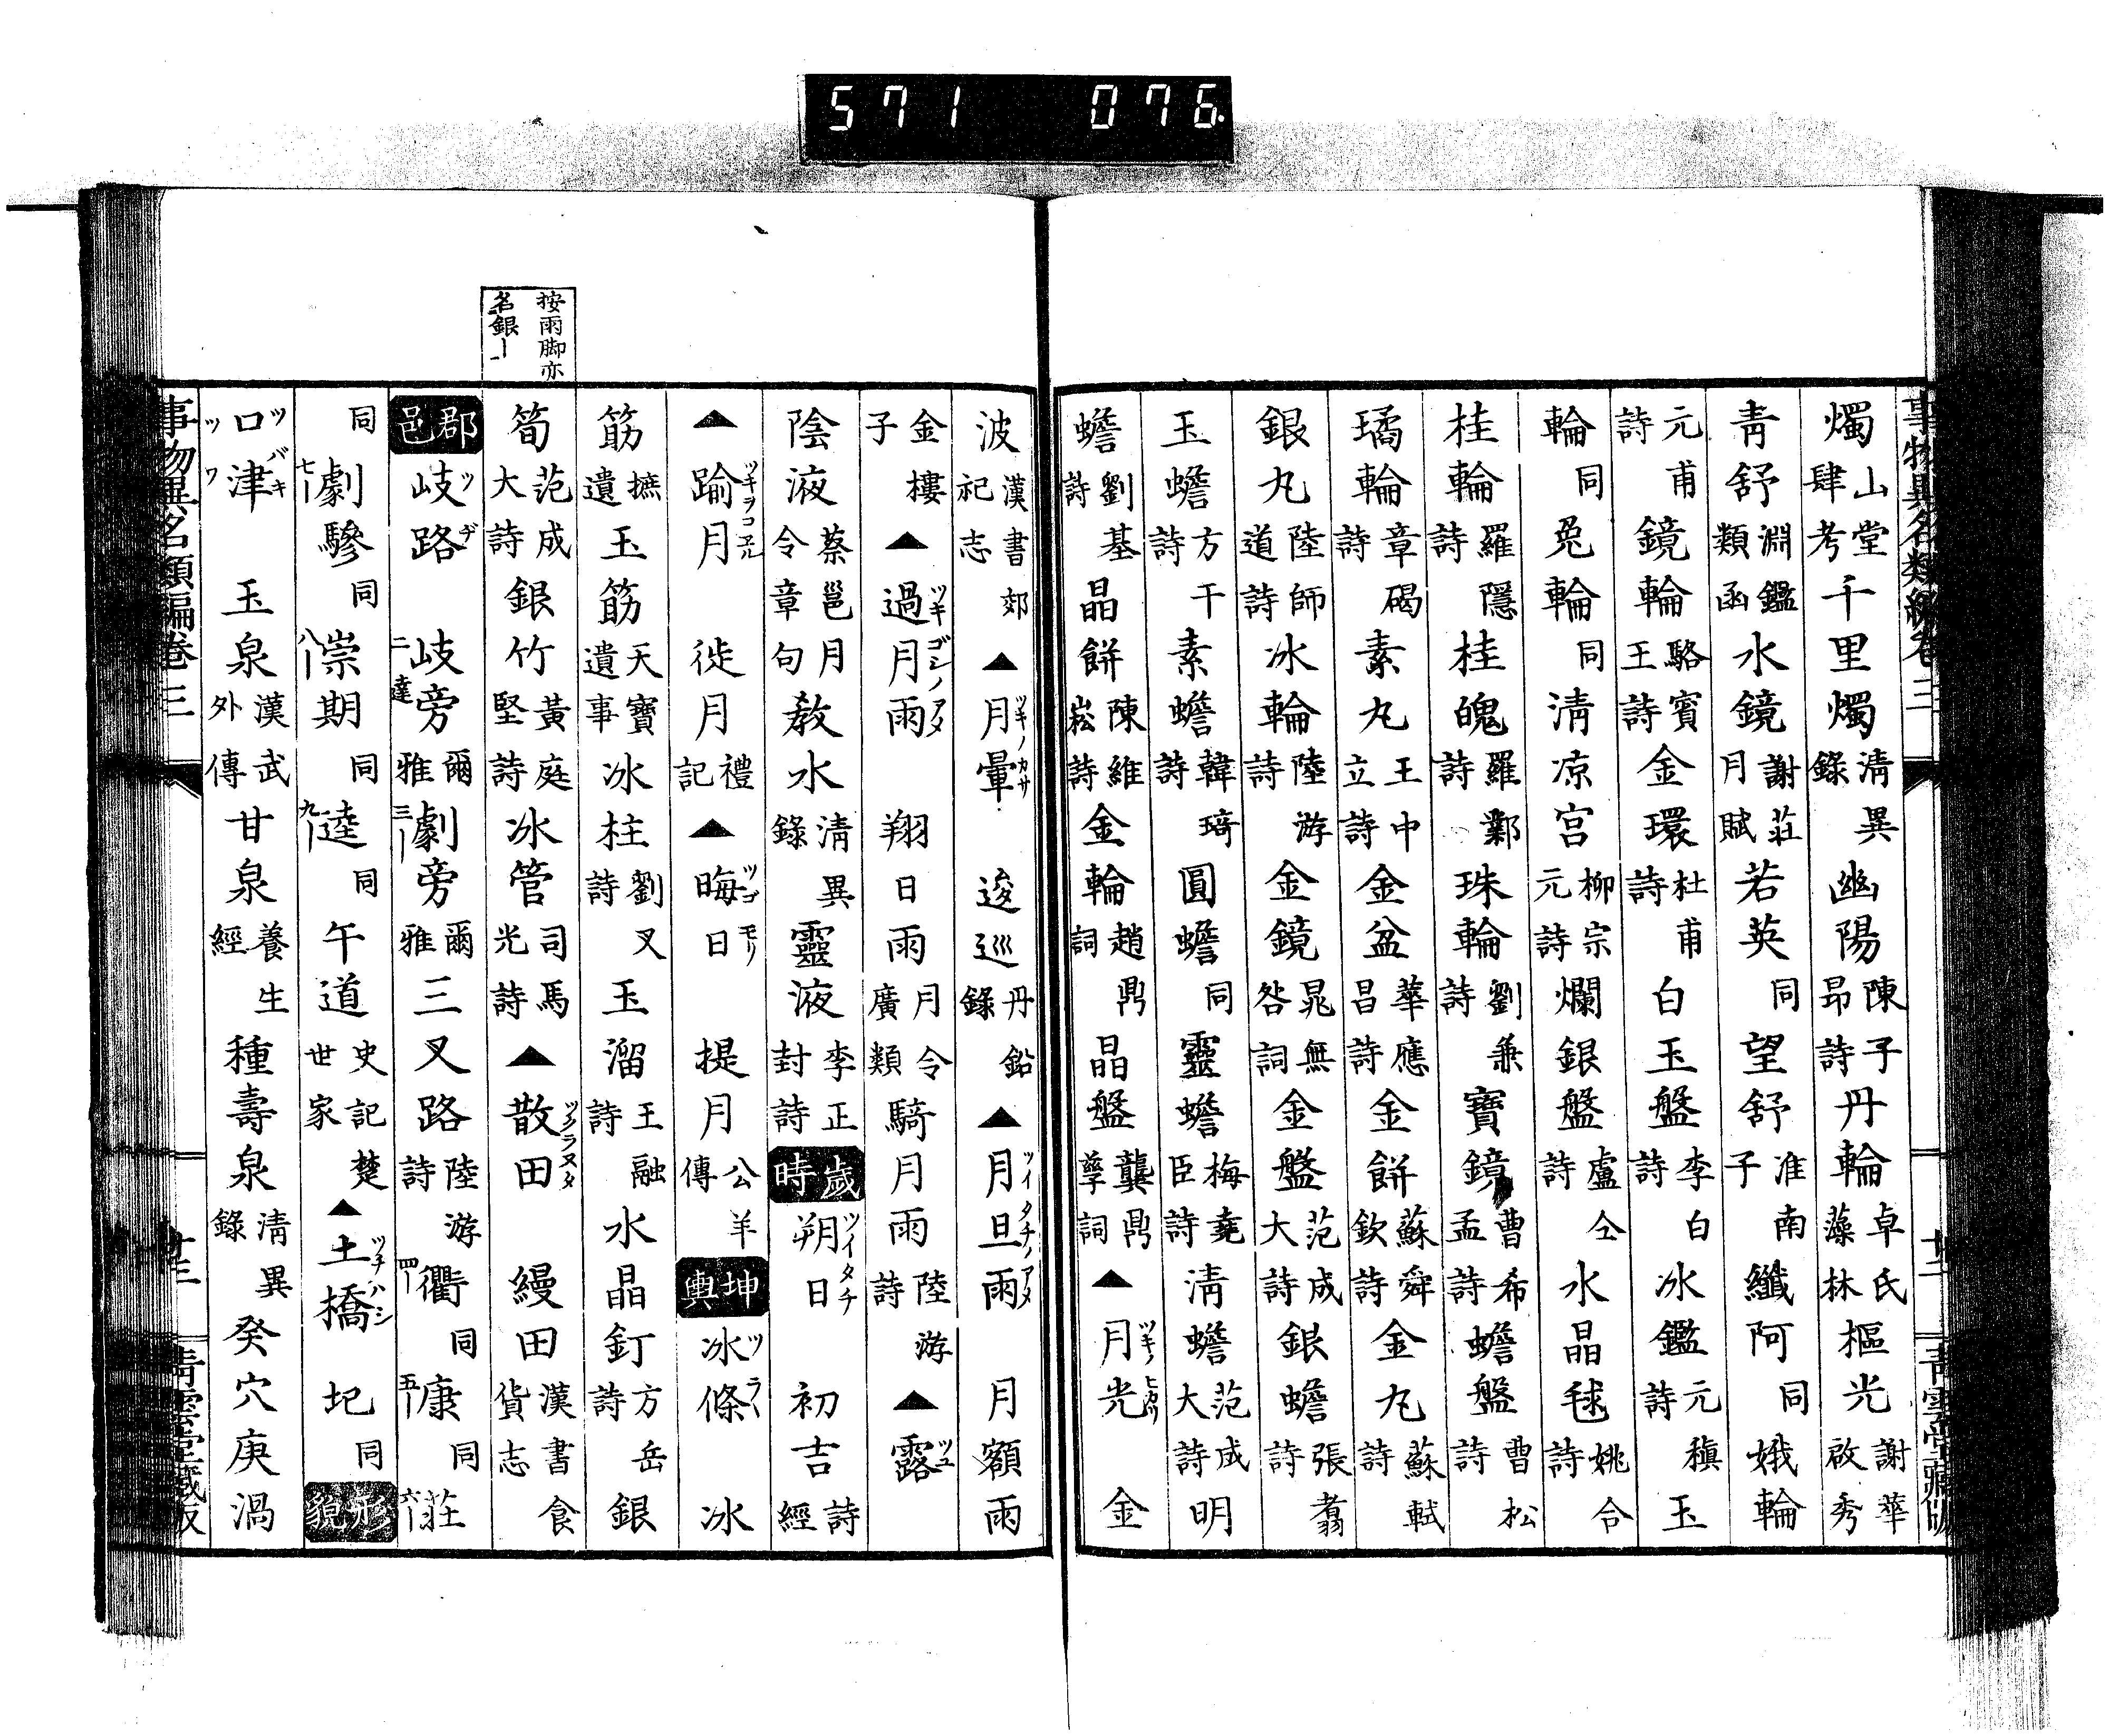 571 076
事物異名類編卷三 廿二 青雲堂藏版
燭山堂肆考千里燭清異錄幽陽陳子昂詩丹輪卓氏藻林樞光謝華啟秀
青舒淵鑑類函水鏡謝莊月賦若英同望舒淮南子纖阿同娥輪
元甫詩鏡輪駱賓王詩金環杜甫詩白玉盤李白詩冰鑑元稹詩玉
輪同兔輪同清凉宮柳宗元詩爛銀盤盧仝詩水晶毬姚合詩
桂輪羅隱詩桂魄羅鄴詩珠輪劉兼詩寶鏡曹希孟詩蟾盤曹松詩
璚輪章碣詩素丸王中立詩金盆華應昌詩金餅蘇舜欽詩金丸蘇軾詩
銀丸陸師道詩冰輪陸游詩金鏡晁無咎詞金盤范成大詩銀蟾張翥詩
玉蟾方干詩素蟾韓琦詩圓蟾同靈蟾梅堯臣詩清蟾范成大詩明
蟾劉基詩晶餅陳維崧詩金輪趙鼎詞晶盤龔鼎孳詞▲月光ツキノヒカリ 金
波漢書郊祀志▲月暈ツキノカサ 逡巡丹鉛錄▲月旦雨ツイタチノアメ 月額雨
金樓子▲過月雨ツキゴシノアメ 翔日雨月令廣類騎月雨陸游詩▲露ツユ
陰液蔡邕月令章句教水清異錄靈液李正封詩歲時朔日ツイタチ 初吉詩經
▲踰月ツキヲコエル 徙月禮記▲晦日ツゴモリ 提月公羊傳坤輿冰條ツラヽ 冰
筯摭遺玉筯天寶遺事冰柱劉叉詩玉溜王融詩水晶釘方岳詩銀
按雨脚亦名銀ー
筍范成大詩銀竹黃庭堅詩冰管司馬光詩▲散田ツクラヌタ 縵田漢書食貨志
郡邑岐路ツヂ 岐旁二達爾雅劇旁三ー爾雅三叉路陸游詩衢四ー同康五ー同莊六ー
同劇驂七ー同崇期八ー同逵九ー同午道史記楚世家▲土橋ツチハシ 圯同形貌
口津ツバキツワ 玉泉漢武外傳甘泉養生經種壽泉清異錄癸穴庚渦
事物異名類編卷三 廿三 青雲堂藏版